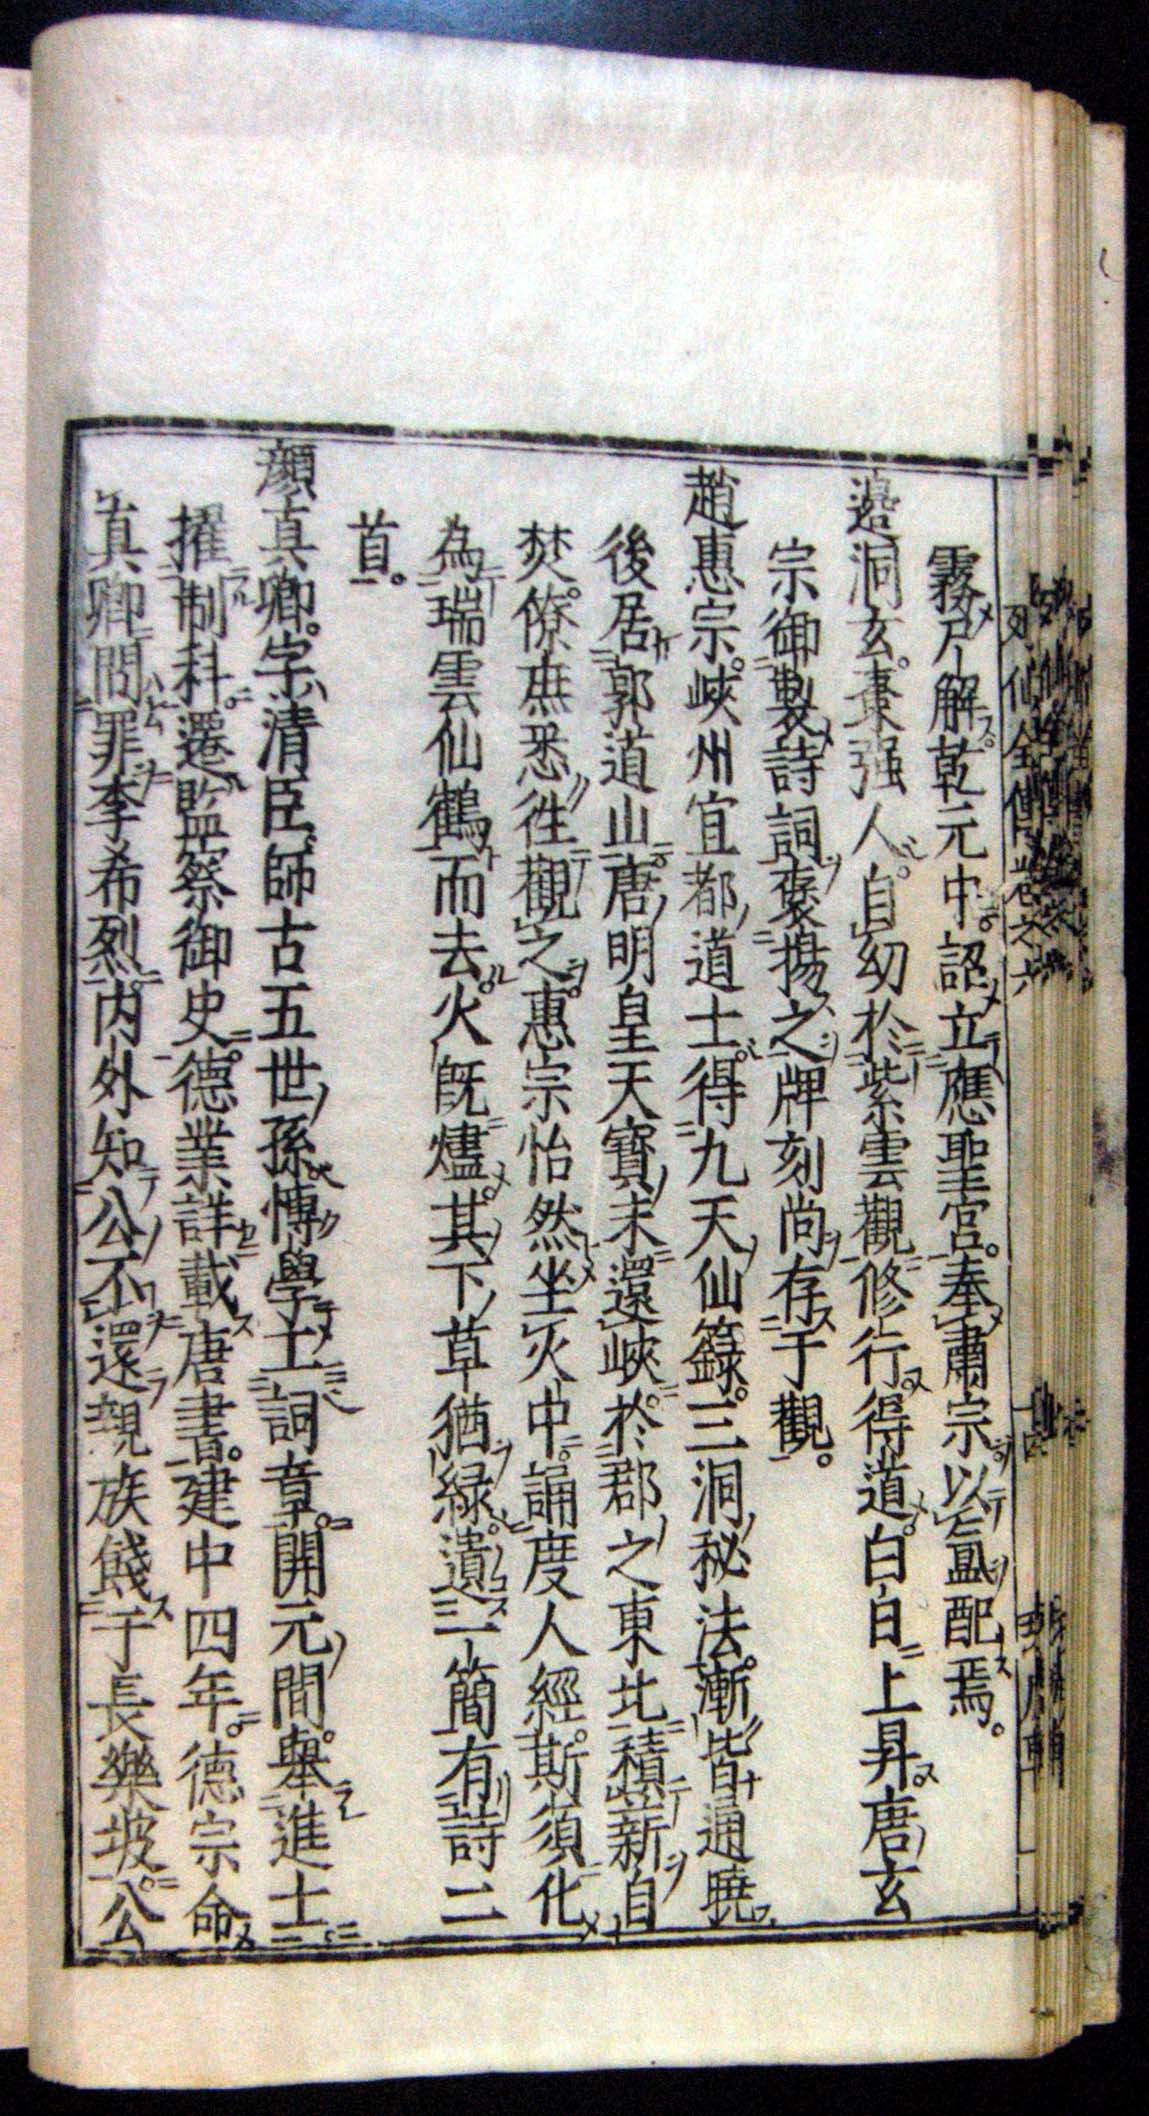 霧尸解乾元中。詔立應聖宮。奉肅宗以盲配焉。
邉洞玄。棗强人。自幼於紫雲觀修行。得道。白日上昇。唐玄
宗御製詩詞褒揚之。牌刻尚存于觀。
趙惠宗。峽州宜都道士。得九天仙籙。三洞秘法。漸皆通曉
後居郭道山。唐明皇天寶末還峽。於郡之東北積薪自
焚。僚庶悉徃觀之。惠宗怡然坐火中。誦度人經。斯須化
為瑞雲仙鶴而去。火既燼。其下草猶緑。遺一簡有詩二
首。
顔真卿。字清臣。師古五世孫。博學工詞章。開元間。舉進士
擢制科。遷監察御史。德業詳載唐書。建中四年。德宗命
真卿問罪李希烈。内外知公不還。親族餞于長樂坡。公
列仙全傳卷之六